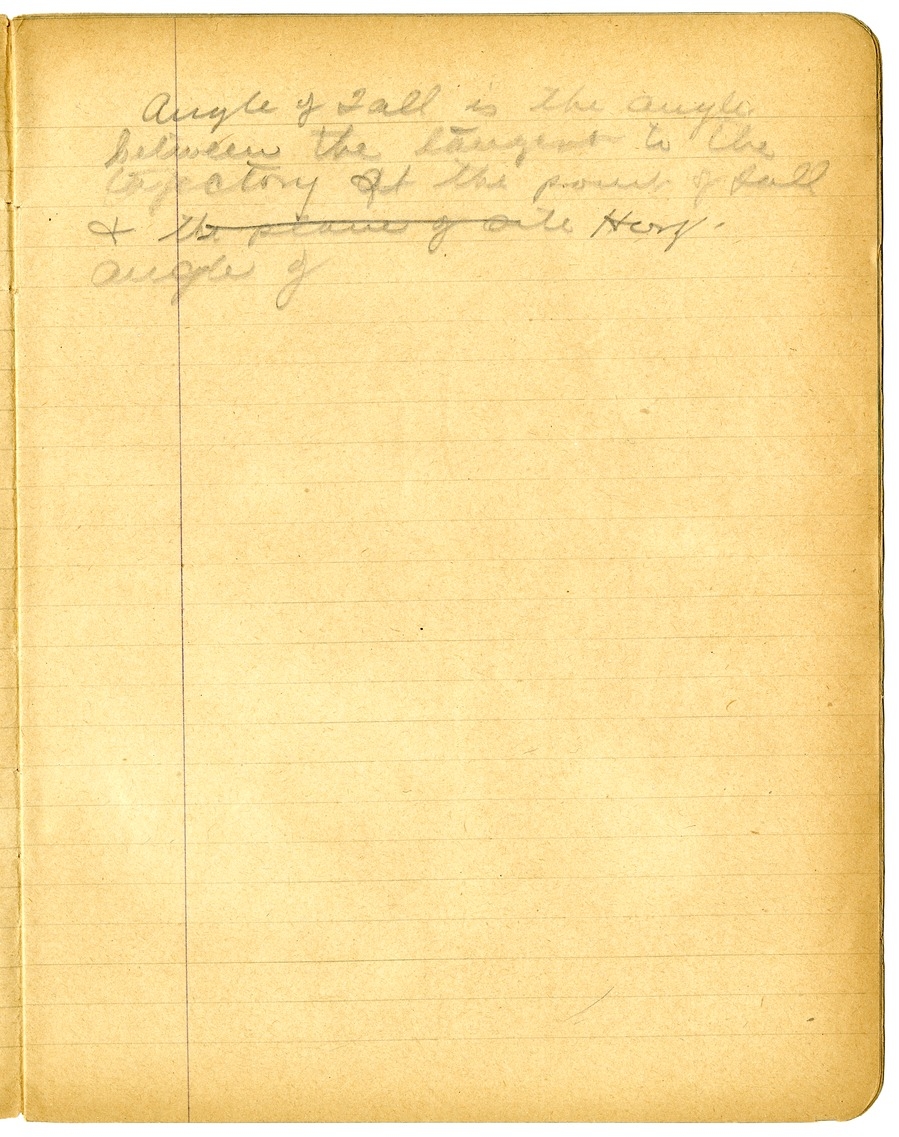 Angle of Fall is the angle
between the tangent to the
trajectory at the point of fall
& the plane of site Horz.
angle of